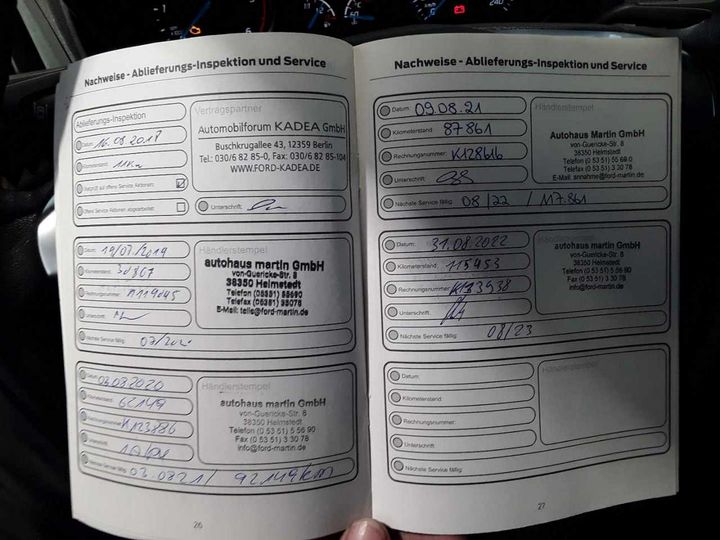 Nachweise - Ablieferungs-Inspektion und Service
Ablieferungs-Inspektion
Datum: 16.08.2018
Kilometerstand: 11Km
Geprüft auf offene Service Aktionen:
Offene Service Aktionen abgearbeitet:
Vertragspartner
Automobilforum KADEA GmbH
Buschkrugallee 43, 12359 Berlin
Tel.: 030/6 82 85-0, Fax: 030/6 82 85-104
WWW.FORD-KADEA.DE
Unterschrift:
Datum: 19/07/2019
Kilometerstand: 30367
Rechnungsnummer:
Unterschrift:
Nächste Service fällig:
Händlerstempel
autohaus martin GmbH
von-Guericke-Str. 8
38350 Helmstedt
Telefon (05351) 55690
Telefax (05351) 33078
E-Mail: teile@ford-martin.de
Datum: 03.08.2020
Kilometerstand: 62149
Rechnungsnummer: K123886
Unterschrift:
Nächste Service fällig: 03.0821/ 92149KM
Händlerstempel
autohaus martin GmbH
von-Guericke-Str. 8
38350 Helmstedt
Telefon (0 53 51) 5 56 90
Fax (0 53 51) 3 30 78
info@ford-martin.de
26
Nachweise - Ablieferungs-Inspektion und Service
Datum: 09.08.21
Kilometerstand: 87861
Rechnungsnummer: K128616
Unterschrift:
Nächste Service fällig: 08/22 / 117.861
Händlerstempel
Autohaus Martin GmbH
von-Guericke-Str. 8
38350 Helmstedt
Telefon (0 53 51) 55 69 0
Telefax (0 53 51) 3 30 78
E-Mail: annahme@ford-martin.de
Datum: 31.08.2022
Kilometerstand: 115453
Rechnungsnummer: K133938
Unterschrift:
Nächste Service fällig: 08/23
Händlerstempel
autohaus martin GmbH
von-Guericke-Str. 8
38350 Helmstedt
Telefon (0 53 51) 5 56 90
Fax (0 53 51) 3 30 78
info@ford-martin.de
Datum:
Kilometerstand:
Rechnungsnummer:
Unterschrift:
Nächste Service fällig:
Händlerstempel
27